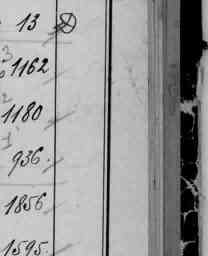 13
3
1162
2
1180
1
936.
1856
1595.